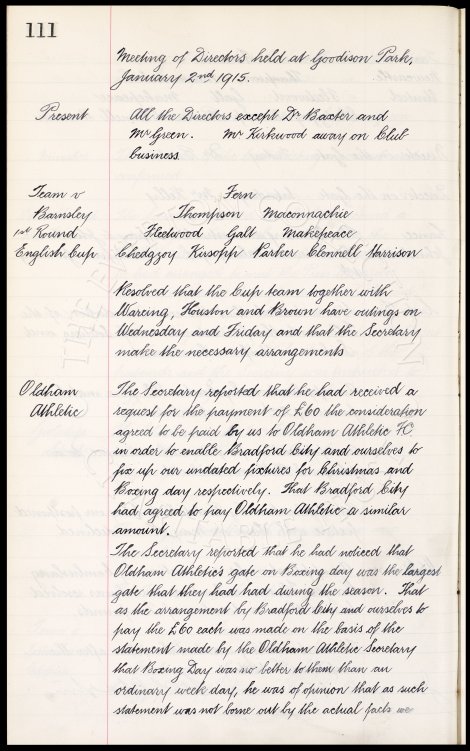 111
Meeting of Directors held at Goodison Park,
January 2nd 1915.
Present
All the Directors except Dr Baxter and
Mr Green. Mr Kirkwood away on Club
business.
Team v
Barnsley
1st Round
English Cup
Fern
Thompson Maconnachie
Fleetwood Galt Makepeace
Chedgzoy Kirsopp Parker Clennell Harrison
Resolved that the Cup team together with
Wareing, Houston and Brown have outings on
Wednesday and Friday and that the Secretary
make the necessary arrangements
Oldham
Athletic
The Secretary reported that he had received a
request for the payment of £60 the consideration
agreed to be paid by us to Oldham Athletic FC
in order to enable Bradford City and ourselves to
fix up our undated fixtures for Christmas and
Boxing day respectively. That Bradford City
had agreed to pay Oldham Athletic a similar
amount.
The Secretary reported that he had noticed that
Oldham Athletic's gate on Boxing day was the largest
gate that they had had during the season. That
as the arrangement by Bradford City and ourselves to
pay the £60 each was made on the basis of the
statement made by the Oldham Athletic Secretary
that Boxing Day was no better to them than an
ordinary week day, he was of opinion that as such
statement was not borne out by the actual facts we